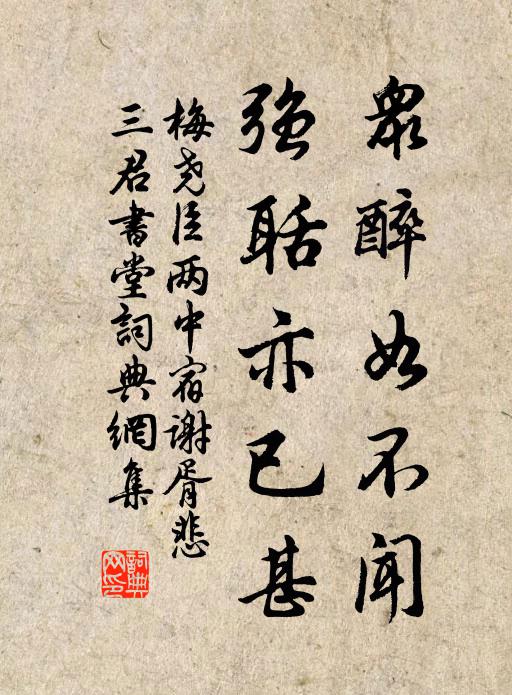 衆醉如不聞
強聒亦已甚
梅尧臣两中宿谢胥悲
三君書堂詞典網集
詞典
网印